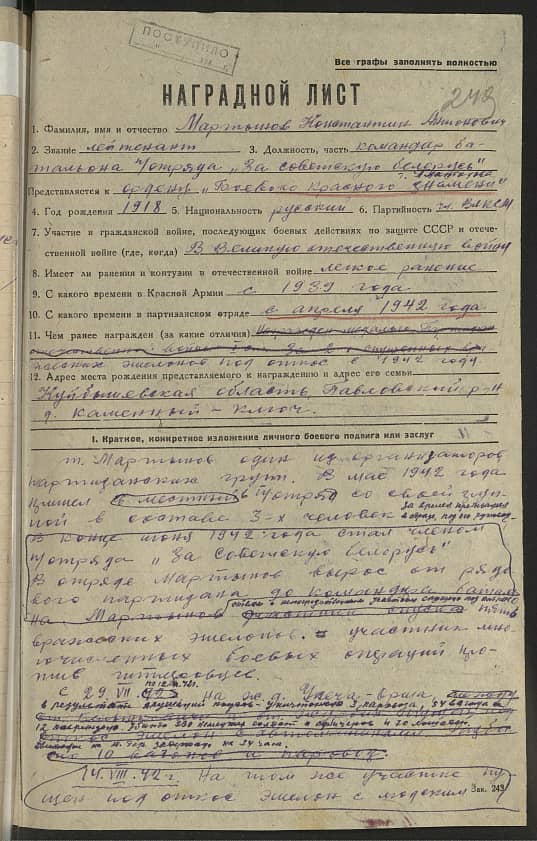 ПОСТУПИЛО
Все графы заполнять полностью
НАГРАДНОЙ ЛИСТ
249
1. Фамилия, имя и отчество Мартынов Константин Антонович
2. Звание лейтенант 3. Должность, часть командир ба-
тальона п/отряда "За советскую белорусь"
Представляется к ордену "Боевого красного знамени"
4. Год рождения 1918 5. Национальность русский 6. Партийность чл. ВЛКСМ
7. Участие в гражданской войне, последующих боевых действиях по защите СССР и отече-
ственной войне (где, когда) В Великую отечественную войну
8. Имеет ли ранения и контузии в отечественной войне легкое ранение
9. С какого времени в Красной Армии с 1939 года
10. С какого времени в партизанском отряде с апреля 1942 года
11. Чем ранее награжден (за какие отличия)
эшелонов под откос с 1942 году.
12. Адрес места рождения представляемого к награждению и адрес его семьи
Куйбышевская область, Павловский р-н
д. Каменный-Ключ.
I. Краткое, конкретное изложение личного боевого подвига или заслуг
т. Мартынов один из организаторов
партизанских групп. В мае 1942 года
пришел в п/отряд со своей груп-
пой в составе 3-х человек
В конце июня 1942 года стал членом
п/отряда "За Советскую белорусь"
В отряде Мартынов вырос от рядо
вого партизана до командира батальо
на Мартынов пять
вражеских эшелонов. участник мно-
гочисленных боевых операций про-
тив гитлеровцев.
С 29. VII. на ж.д. Унеча-
в результате 3 паровоза,
солдат и офицеров и 20 лошадей.
на 24 часа.
10 вагонов и паровоз.
14. VIII. 42 г. На том же участке пу-
щен под откос эшелон с людским
Зак. 243